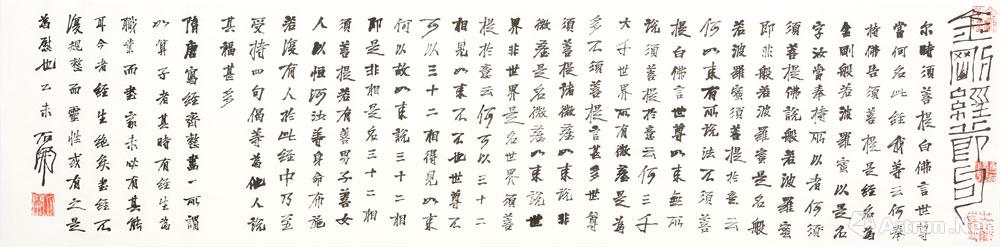 金剛經節
尔時須菩提白佛言世尊
當何名此經我等云何奉
持佛告須菩提是經名為
金剛般若波羅蜜以是名
字汝當奉持所以者何須
菩提佛說般若波羅蜜
即非般若波羅蜜是名般
若波羅蜜須菩提於意云
何如來有所說法不須菩
提白佛言世尊如來無所
說須菩提於意云何三千
大千世界所有微塵是為
多不須菩提言甚多世尊
須菩提諸微塵如來說非
微塵是名微塵如來說世
界非世界是名世界須菩
提於意云何可以三十二
相見如來不不也世尊不
可以三十二相得見如來
何以故如來說三十二相
即是非相是名三十二相
須菩提若有善男子善女
人以恒河沙等身命布施
若復有人於此經中乃至
受持四句偈等為他人說
其福甚多
隋唐寫經齊整畫一所謂
如算子者其時有經生為
職業而書家未必有其能
耳今者經生絕矣書經不
復規整而靈性或有之是
為慰也乙未 石開